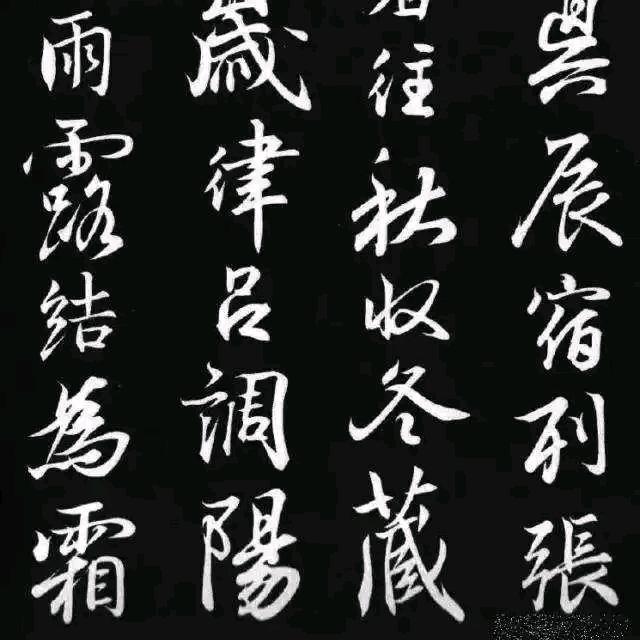 昃辰宿列張
往秋収冬藏
歲律呂調陽
雨露結為霜